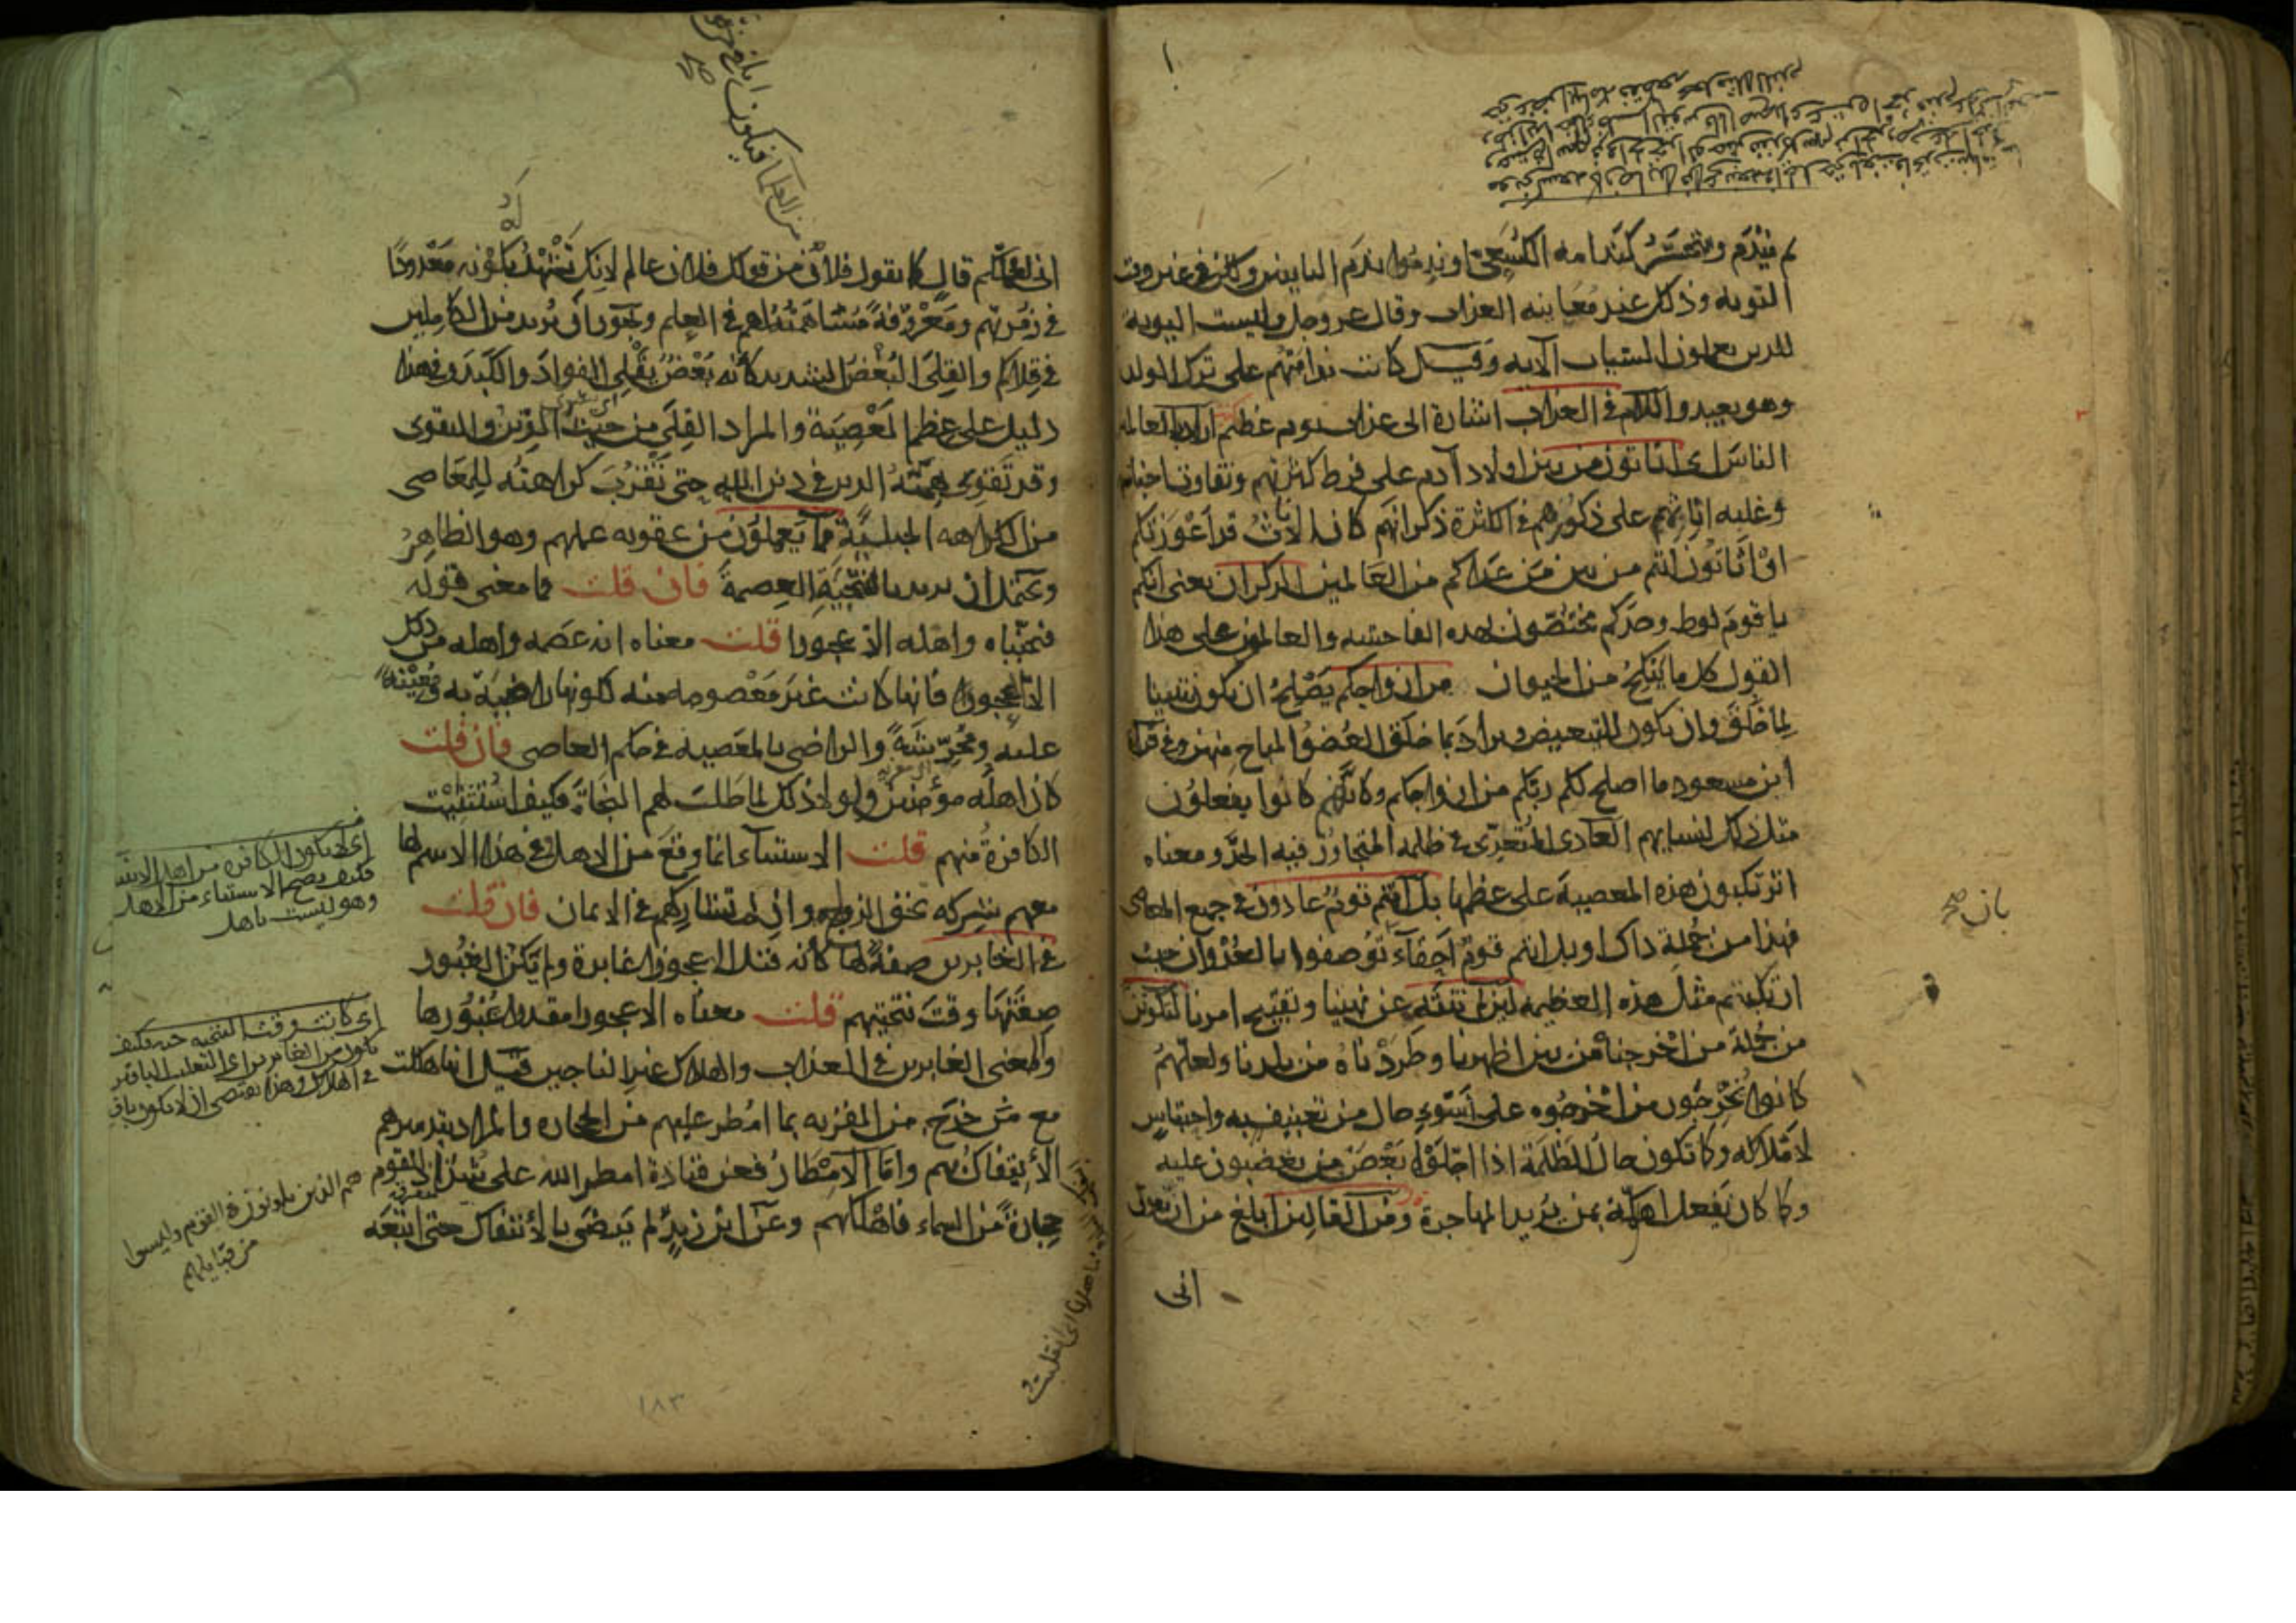 ثم يندم ويتحسر كندامة الكسعي او ندموا ندم التائبين ولكن في غير وقت
التوبة وذلك عند معاينة العذاب وقال عز وجل وليست التوبة
للذين يعملون السيئات الآية وقيل كانت ندامتهم على ترك الولد
وهو بعيد واللام في العذاب اشارة الى عذاب يوم عظيم اراد بالعالمين
الناس اى اتاتون من بين اولاد آدم على فرط كثرتهم وتفاوت اجناسهم
وغلبة اناثهم على ذكورهم في الكثرة ذكرانهم كان الاناث قد اعوزتكم
او اتاتون انتم من بين من عداكم من العالمين الذكران يعنى انكم
يا قوم لوط وحدكم مختصون بهذه الفاحشة والعالمون على هذا
القول كل ما ينكح من الحيوان من ازواجكم يصلح ان يكون تبيينا
لما خلق وان يكون للتبعيض ويراد بما خلق العضو المباح منهن وفي قراة
ابن مسعود ما اصلح لكم ربكم من ازواجكم وكانهم كانوا يفعلون
مثل ذلك بنسايهم العادى المتعدى في ظلمه المتجاوز فيه الحد ومعناه
اترتكبون هذه المعصية على عظمها بل انتم قوم عادون في جميع المعاصى
فهذا من جملة ذاك او بل انتم قوم احقآء توصفوا بالعدوان حيث
ارتكبتم مثل هذه العظيمة لئن لم تنته عن نهينا وتقبيح امرنا لتكونن
من جملة من اخرجناه من بين اظهرنا وطردناه من بلدنا ولعلهم
كانوا يخرجون من اخرجوه على اسوء حال من تعنيف به واحتباس
لاملاكه وكما تكون حال الظلمة اذا اجلوا بعض من يغضبون عليه
وكما كان يفعل اهل مكة بمن يريد المهاجرة ومن القالين ابلغ من ان يقول
انى
بان صح
انى لعملكم قال كما يقول فلان من قولك فلان عالم لانك تشهد بكونه معدودا
في زمرتهم ومعروفة مساهمته لهم في العلم ويجوز ان يريد من الكاملين
في قلاكم والقلى البغض الشديد كانه بغض يقلى الفواد والكبد وفي هذا
دليل على عظم المعصية والمراد القلى من حيث الدين والتقوى
وقد تقوى همة الدين في دين الله حتى تقرب كراهته للمعاصى
من الكراهه الجبلية مما يعملون من عقوبة عملهم وهو الظاهر
ويحتمل ان يريد بالتنجية العصمة فان قلت فما معنى قوله
فنجيناه واهله الا عجوزا قلت معناه انه عصمه واهله من ذلك
الا العجوز فانها كانت غير معصومة منه لكونها راضية به ومعينة
عليه ومحرشة والراضى بالمعصية في حكم العاصى فان قلت
كان اهله مؤمنين ولولا ذلك لما طلب لهم النجاة فكيف استثنيت
الكافرة منهم قلت الاستثناء انما وقع من الاهل وفي هذا الاسم لها
معهم شركة بحق الزواج وان لم تشاركهم في الايمان فان قلت
في الغابرين صفة لها كانه قيل الا عجوزا غابرة ولم يكن الغبور
صفتها وقت تنجيتهم قلت معناه الا عجوزا مقدرا غبورها
والمعنى الغابرين في العذاب والهلاك غير الناجين قيل انها هلكت
مع من خرج من القرية بما امطر عليهم من الحجاره والمراد بتدميرهم
الايتفاك بهم واما الامطار فعن قتادة امطر الله على شذاذ القوم
حجارة من السماء فاهلكهم وعن ابن زيد لم يرض بالائتفاك حتى اتبعه
اى لا تكون الكافرة من اهل
فكيف يصح الاستثناء من الاهل
وهو ليست باهل
اى كانت وقت التنجيه حيه فكيف
تكون من الغابرين
في الهلاك وهذا يقتضى ان لا يكون باق
هم الذين يكونون في القوم وليسوا
من قبايلهم
١٨٣